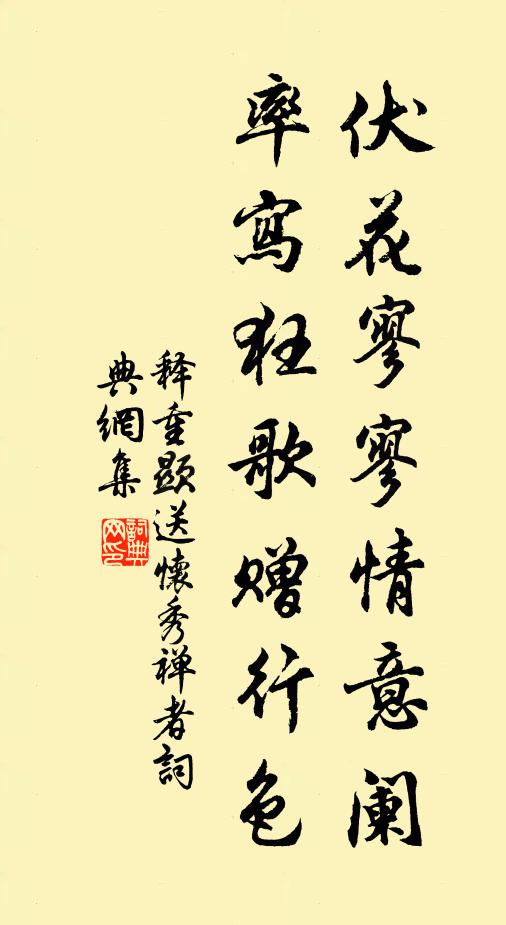 伏花寥寥情意阑
率寫狂歌赠行色
释重顯送懷秀禅者詞
典網集
詞典
网印